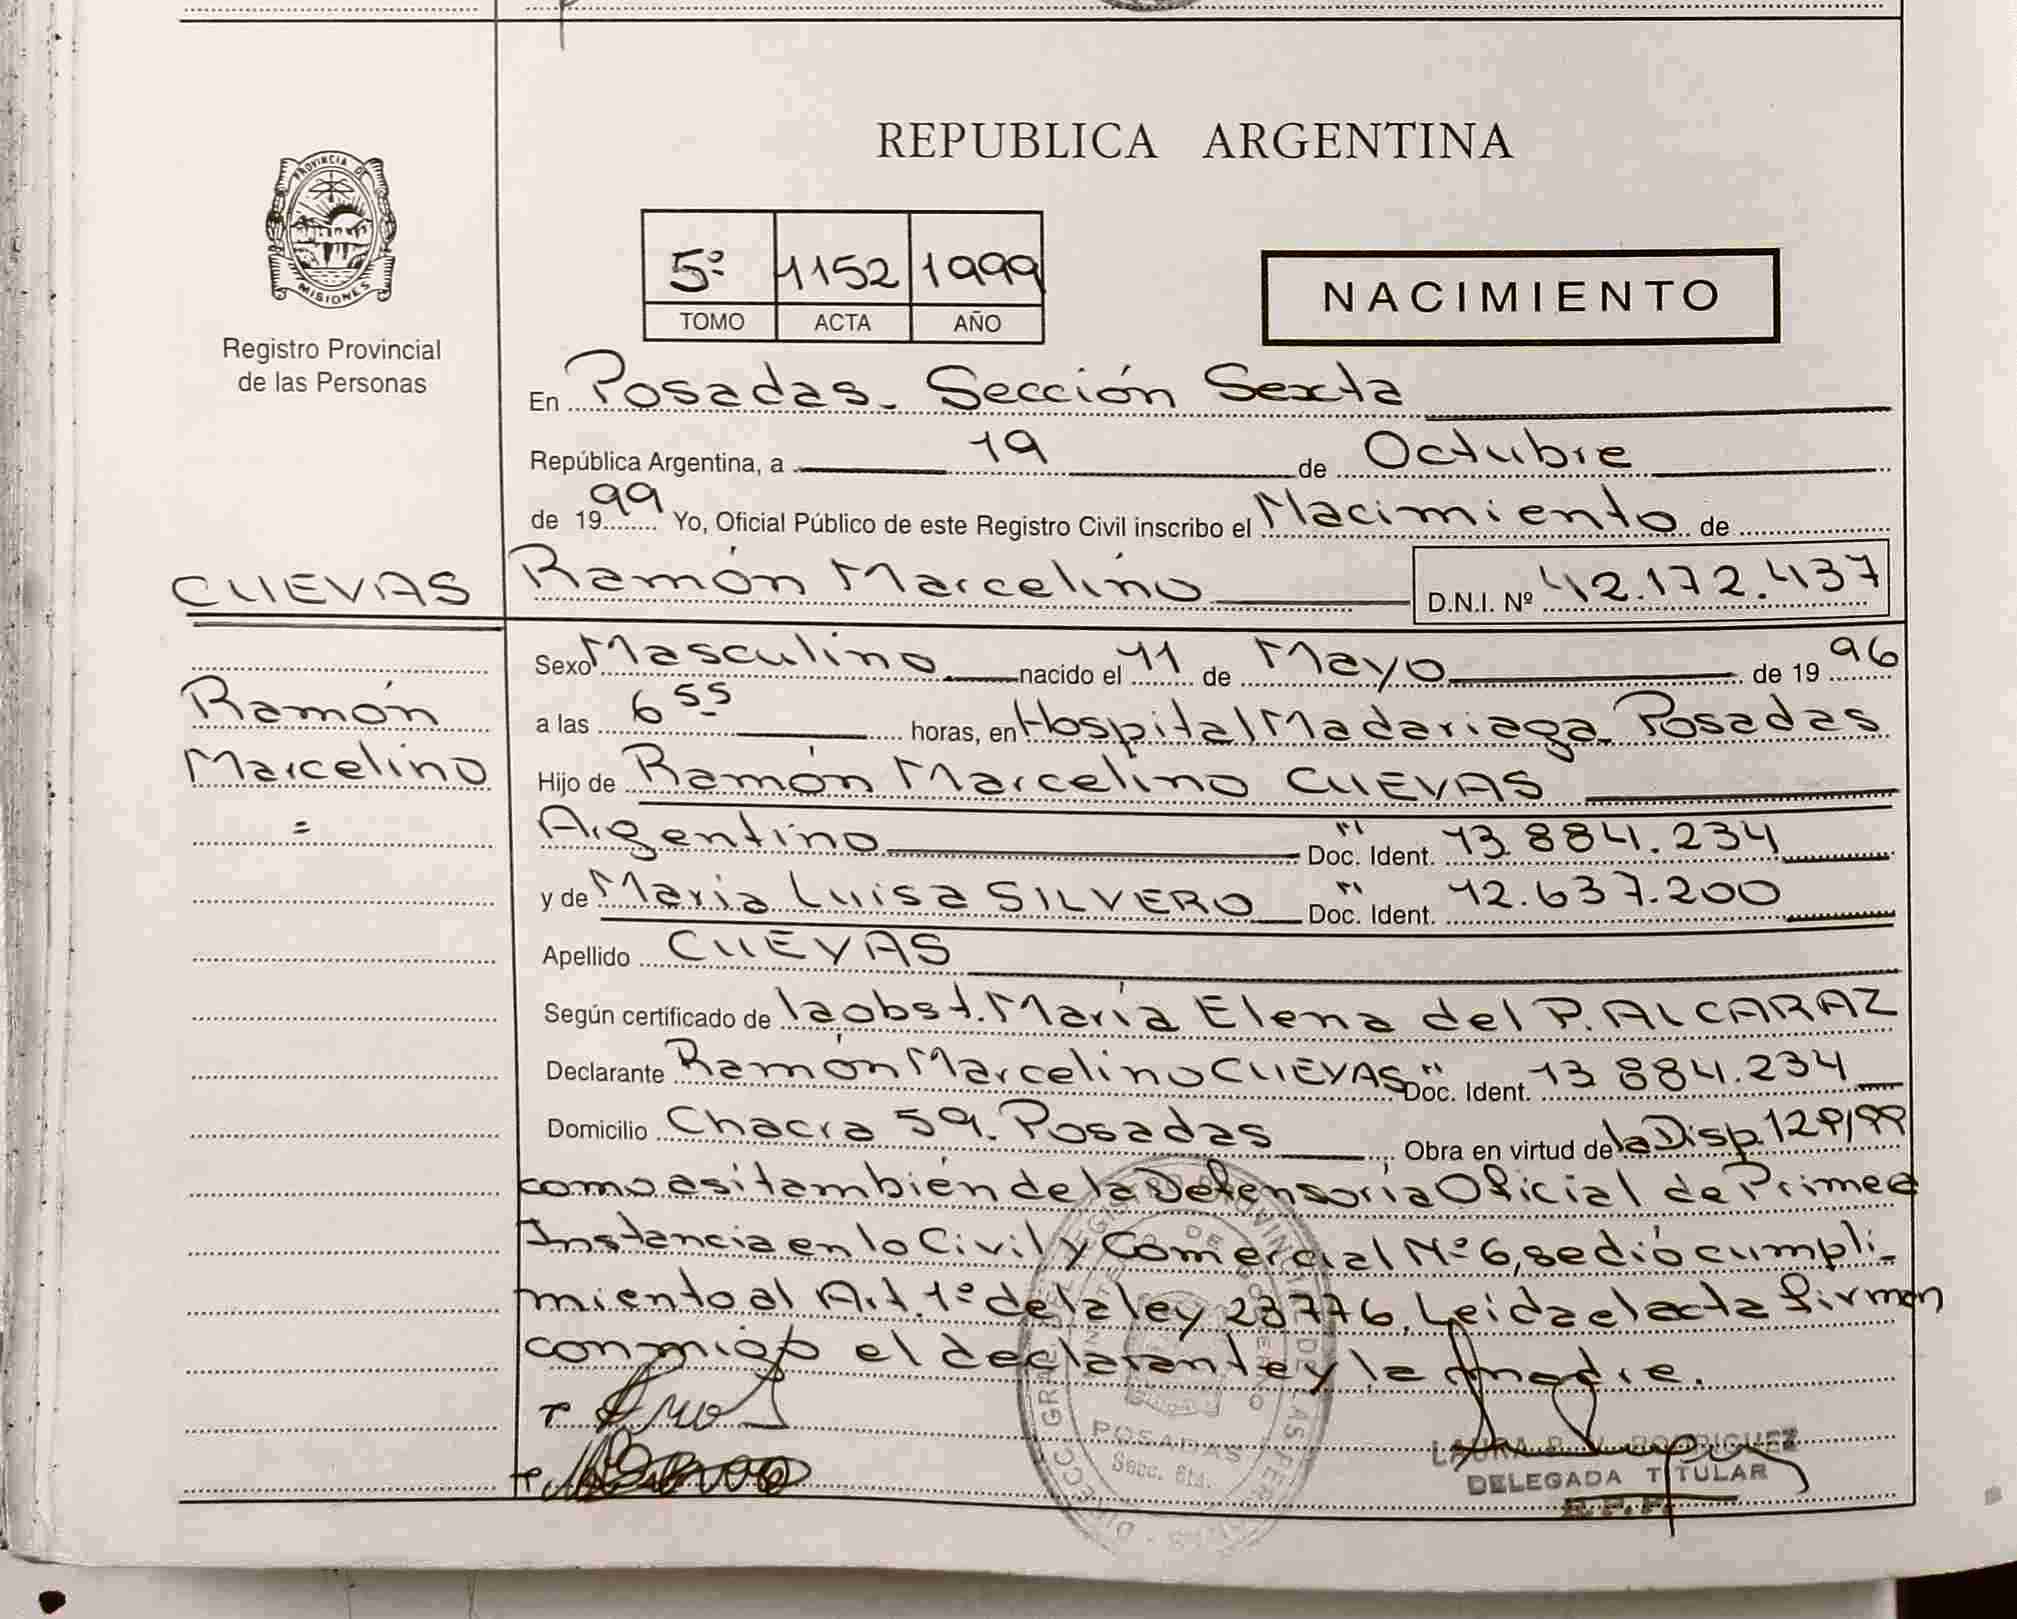 REPUBLICA ARGENTINA
PROVINCIA DE
MISIONES
Registro Provincial
de las Personas
5º 1152 1999
TOMO ACTA AÑO
NACIMIENTO
En Posadas. Sección Sexta
República Argentina, a 19 de Octubre
de 1999 Yo, Oficial Público de este Registro Civil inscribo el Nacimiento de
CUEVAS Ramón Marcelino D.N.I. Nº 42.172.437
Sexo Masculino nacido el 11 de Mayo de 1996
Ramón
a las 6 55 horas, en Hospital Madariaga Posadas
Marcelino
Hijo de Ramón Marcelino CUEVAS
=
Argentino Doc. Ident. 13.884.234
y de Maria Luisa SILVERO Doc. Ident. 12.637.200
Apellido CUEVAS
Según certificado de la obst. María Elena del P. ALCARAZ
Declarante Ramón Marcelino CUEVAS Doc. Ident. 13 884.234
Domicilio Chacra 59. Posadas Obra en virtud de la Disp.
como asi también de la Defensoría Oficial de Primera
Instancia en lo Civil y Comercial Nº 6, se dió cumpli-
miento al Art. 1º de la ley 23776. Leida el acta firman
conmigo el declarante y la madre.
POSADAS
Secc. 6ta.
LAURA RODRIGUEZ
DELEGADA TITULAR
R.P.P.